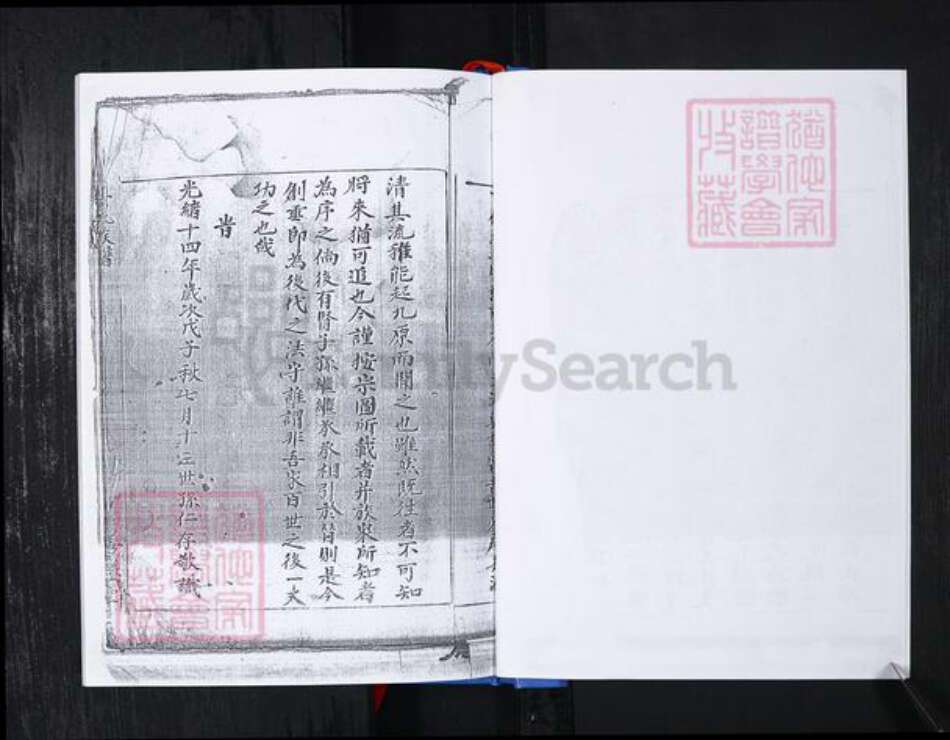 清其流雖能起九原而聞之也雖然既往者不可知
將來猶可追也今謹按宗圖所載者并族眾所知者
為序之倘後有賢子孫繼繼承承相引於替則是今
創垂即為後代之法守誰謂非吾家百世之後一大
功之也哉
旹
光緒十四年歲次戊子秋七月十三世孫仁存敬識
猶他家
譜學會
收藏
猶他家
譜學會
收藏
FamilySearch